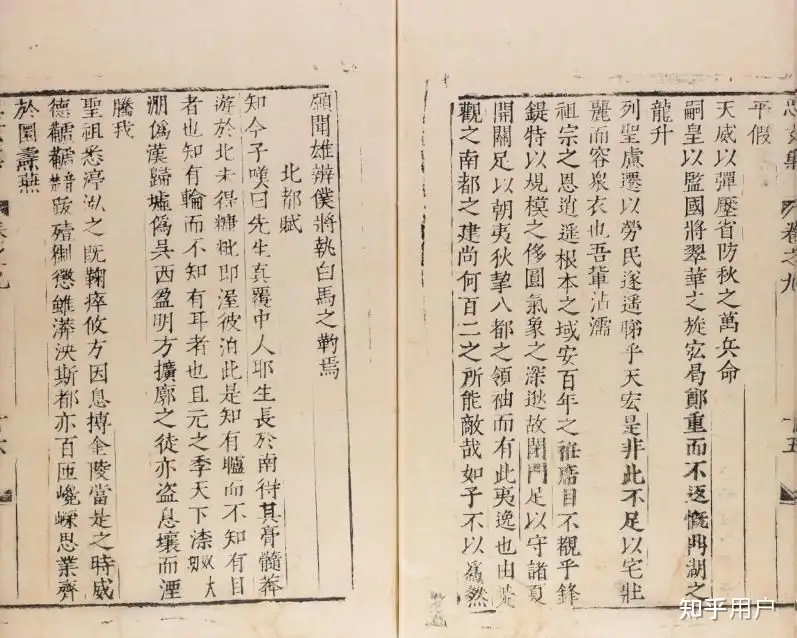 平假
天威以彈壓省防秋之萬兵命
嗣皇以監國將翠華之旋宏局鄭重而不返慨鼎湖之
龍升
列聖慮遷以勞民遂遥睇乎天宏是非此不足以宅壯
麗而容衆衣也吾輩沾濡
祖宗之恩逍遥根本之域安百年之袵席目不覩乎鋒
鍉特以規模之侈圓氣象之深逖故閉門足以守諸夏
開關足以朝夷秋摯八都之領袖而有此夷逸也由是
觀之南都之建尚何百二之所能敵哉如子不以爲然
卷之九
十五
願聞雄辨僕將執白馬之靮焉
北都賦
知今子嘆曰先生真覆中人耶生長於南待其膏髓莽
遊於北未得糠粃即涅彼泊此是知有驢而不知有目
者也知有輪而不知有耳者也且元之季天下漆奴大
溯僞漢歸墟僞吳西盈明方擴廓之徒亦盗息壤而湮
騰我
聖祖悉渟泓之旣鞠瘁攸方因息搏金陵當是之時威
德
斯都亦百匝巉嶸思業齊
於圜壽燕
知乎用户